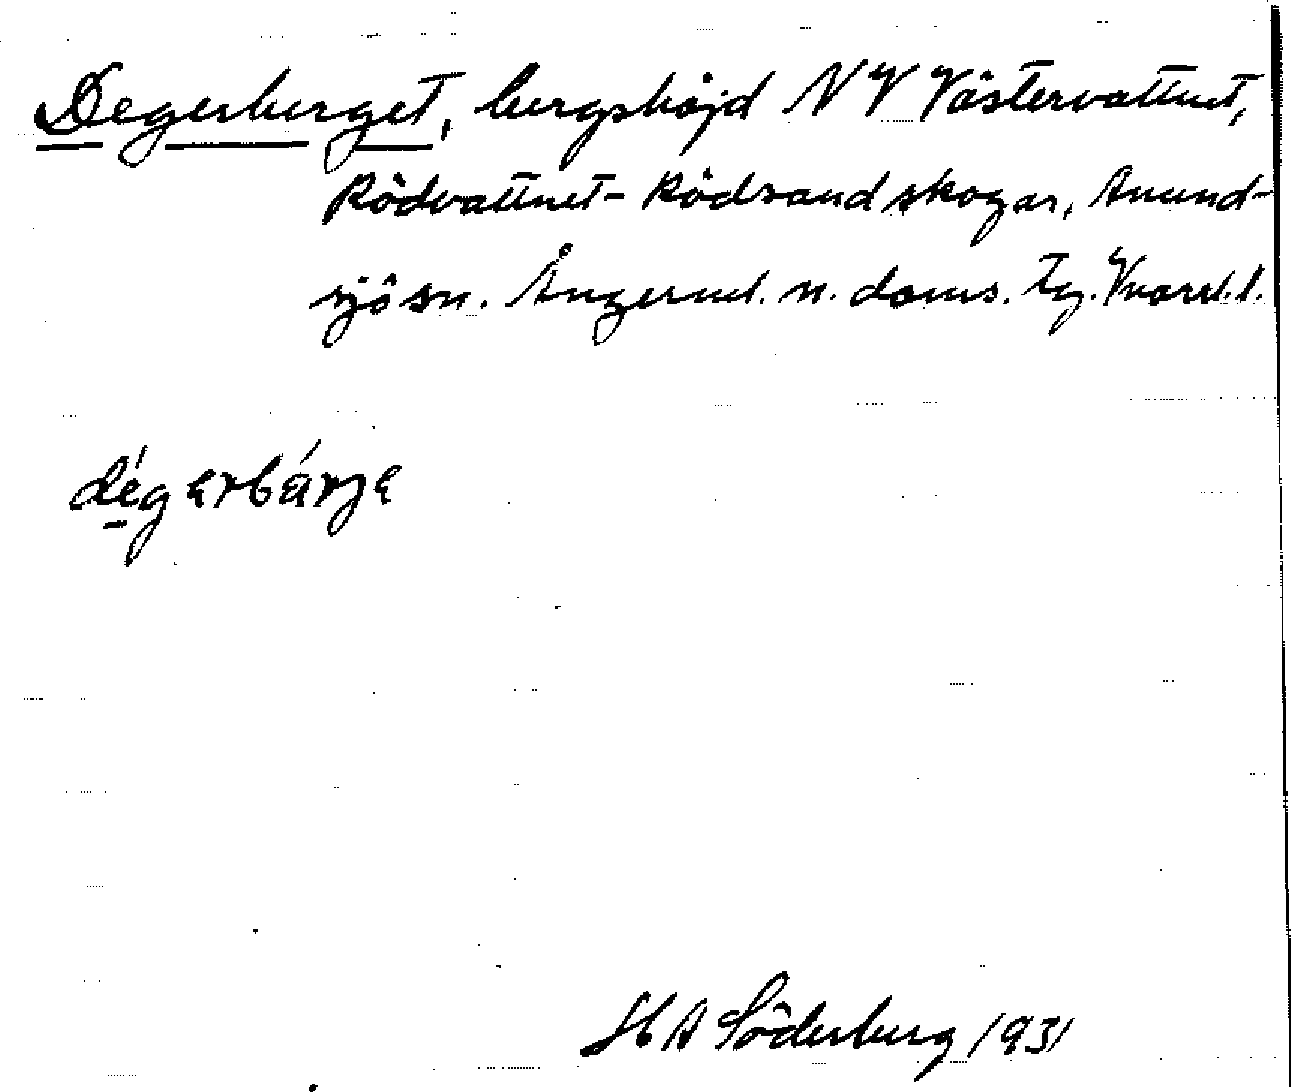 Degerberget, bergshöjd NV Västervattnet,
Rödvattnet-Rödsand skogar, Anund-
sjö sn. Ångerml. n. doms. tg. Vnorrl. l.
degerbärje
H A Söderberg 1931